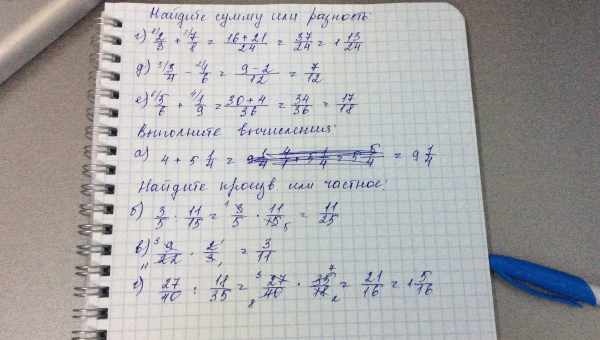 Найдите сумму или разность
г) 2/3 + 7/8 = 16+21/24 = 37/24 = 1 13/24
д) 3/4 - 1/6 = 9-2/12 = 7/12
е) 5/6 + 1/9 = 30+4/36 = 34/36 = 17/18
Выполните вычисления:
а) 4 + 5 1/4 = 9 1/4
Найдите произв или частное:
б) 3/5 · 11/15 = 3/5 · 11/15 = 11/25
в) 9/22 · 2/3 = 3/11
г) 27/40 : 18/35 = 27/40 · 35/18 = 21/16 = 1 5/16